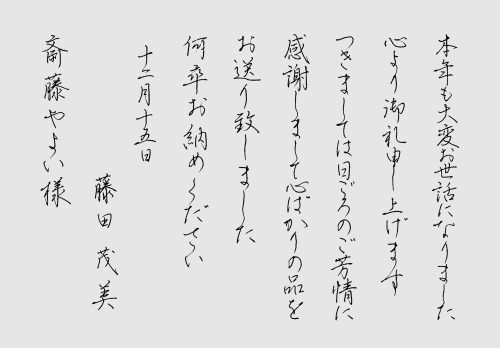 本年も大変お世話になりました
心より御礼申し上げます
つきましては日ごろのご芳情に
感謝しまして心ばかりの品を
お送り致しました
何卒お納めください
十二月十五日
藤田茂美
斎藤やよい様